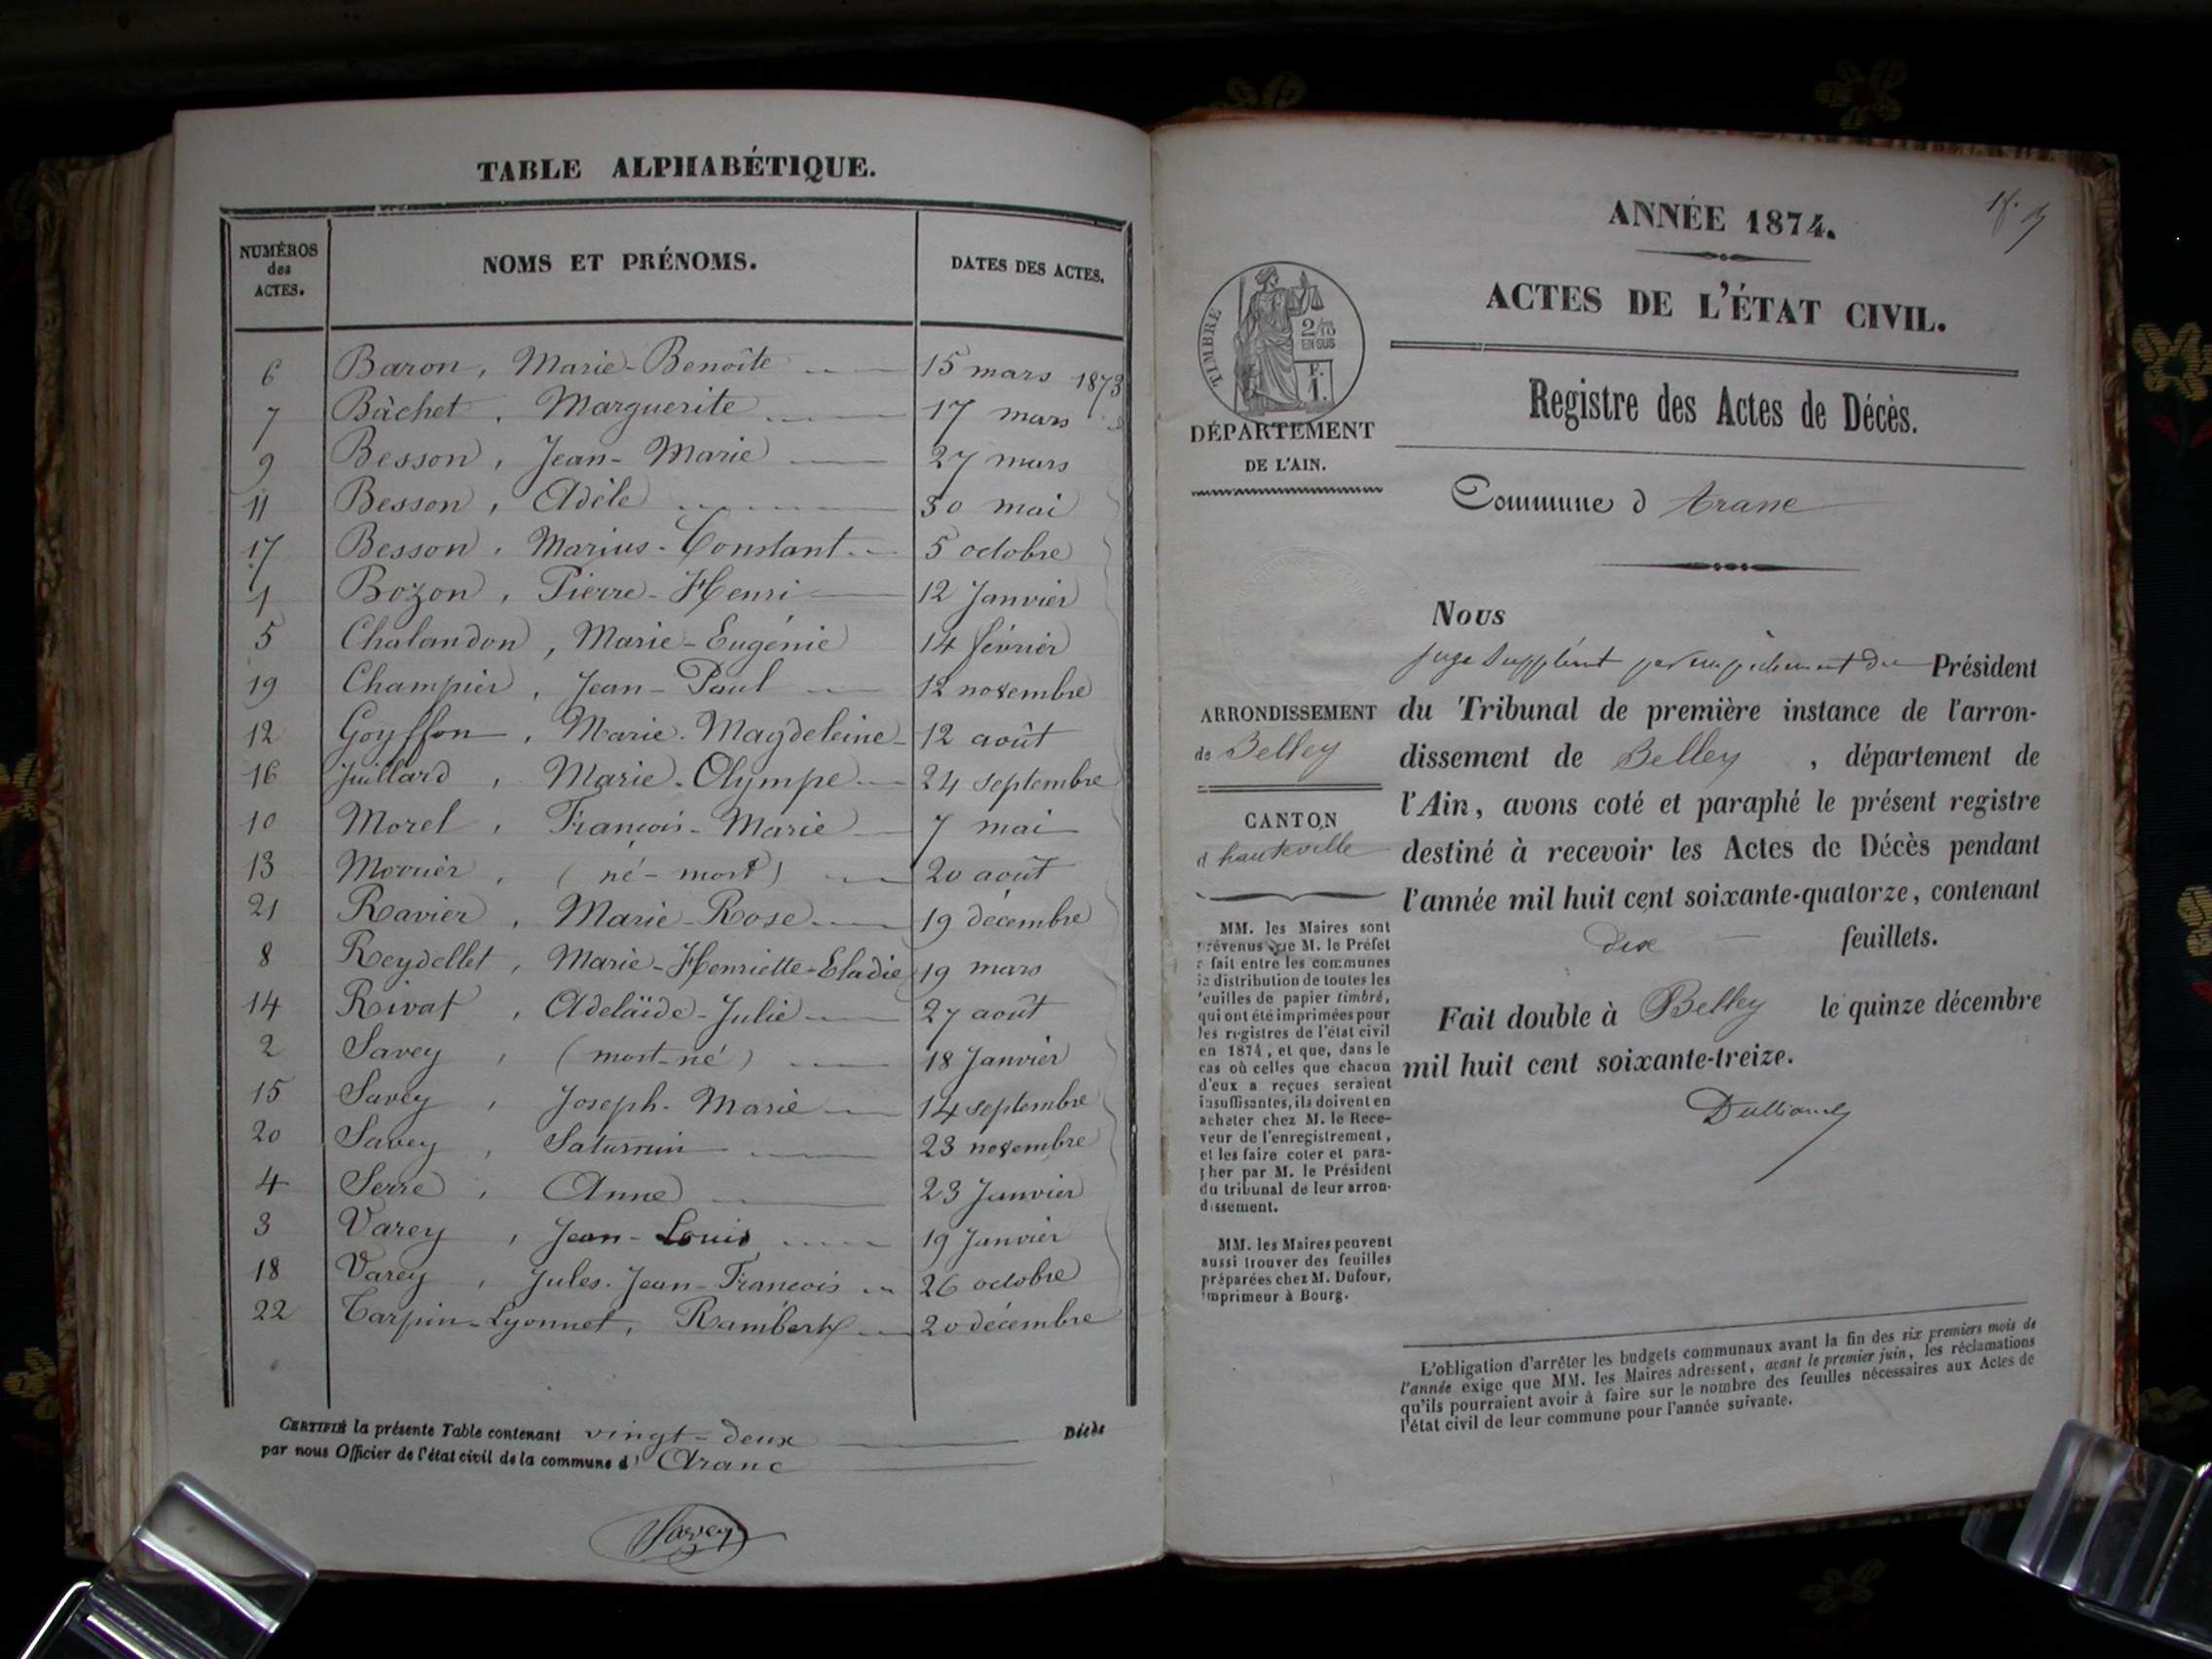 TABLE ALPHABÉTIQUE.
NUMÉROS des ACTES. NOMS ET PRÉNOMS. DATES DES ACTES.
6 Baron, Marie-Benoîte 15 mars 1873
7 Bâchet, Marguerite 17 mars
9 Besson, Jean-Marie 27 mars
11 Besson, Adèle 30 mai
17 Besson, Marius-Constant 5 octobre
1 Bozon, Pierre-Henri 12 Janvier
5 Chalandon, Marie-Eugénie 14 février
19 Champier, Jean-Paul 12 novembre
12 Goyffon, Marie-Magdeleine 12 août
16 Juillard, Marie-Olympe 24 septembre
10 Morel, François-Marie 7 mai
13 Morrier, (né-mort) 20 août
21 Ravier, Marie-Rose 19 décembre
8 Reydellet, Marie-Henriette-Eladie 19 mars
14 Rivat, Adelaïde-Julie 27 août
2 Savey, (mort-né) 18 Janvier
15 Savey, Joseph-Marie 14 septembre
20 Savey, Saturnin 23 novembre
4 Serre, Anne 23 Janvier
3 Varey, Jean-Louis 19 Janvier
18 Varey, Jules-Jean-François 26 octobre
22 Tarpin-Lyonnet, Rambert 20 décembre
CERTIFIÉ la présente Table contenant vingt-deux Décès
par nous Officier de l'état civil de la commune d' Aranc
Savey
ANNÉE 1874.
ACTES DE L'ÉTAT CIVIL.
TIMBRE
2/10
EN SUS
F.
1.
DÉPARTEMENT
DE L'AIN.
Registre des Actes de Décès.
Commune d Aranc
ARRONDISSEMENT
de Belley
CANTON
d hauteville
MM. les Maires sont
prévenus que M. le Préfet
a fait entre les communes
la distribution de toutes les
feuilles de papier timbré,
qui ont été imprimées pour
les registres de l'état civil
en 1874, et que, dans le
cas où celles que chacun
d'eux a reçues seraient
insuffisantes, ils doivent en
acheter chez M. le Rece-
veur de l'enregistrement,
et les faire coter et para-
pher par M. le Président
du tribunal de leur arron-
dissement.
MM. les Maires peuvent
aussi trouver des feuilles
préparées chez M. Dufour,
imprimeur à Bourg.
Nous
juge suppléant par empêchement du Président
du Tribunal de première instance de l'arron-
dissement de Belley, département de
l'Ain, avons coté et paraphé le présent registre
destiné à recevoir les Actes de Décès pendant
l'année mil huit cent soixante-quatorze, contenant
dix feuillets.
Fait double à Belley le quinze décembre
mil huit cent soixante-treize.
L'obligation d'arrêter les budgets communaux avant la fin des six premiers mois de
l'année exige que MM. les Maires adressent, avant le premier juin, les réclamations
qu'ils pourraient avoir à faire sur le nombre des feuilles nécessaires aux Actes de
l'état civil de leur commune pour l'année suivante.